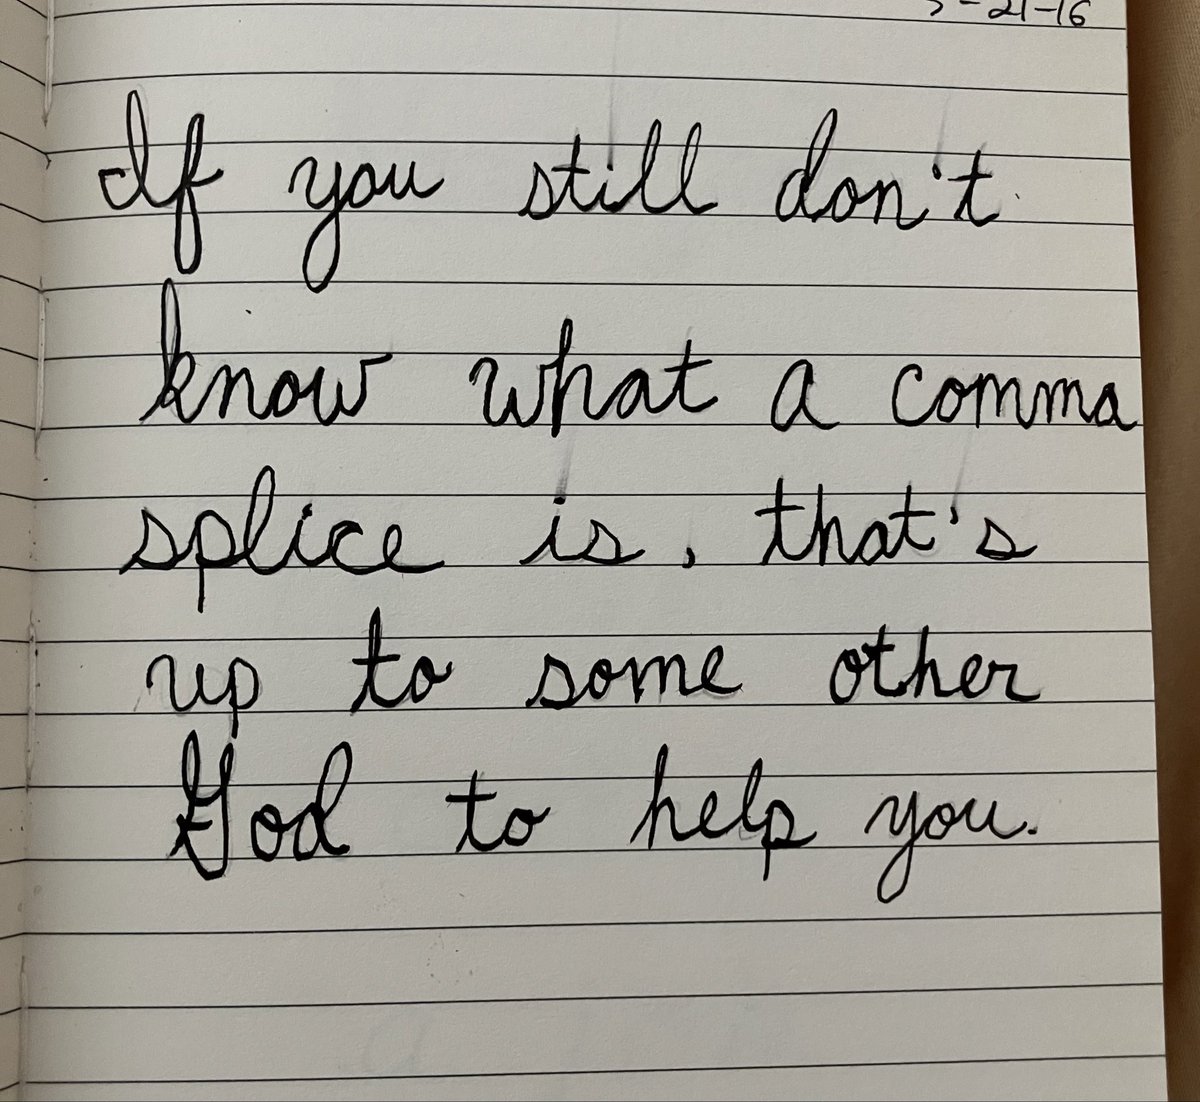 -21-16
If you still don't
know what a comma
splice is, that's
up to some other
God to help you.